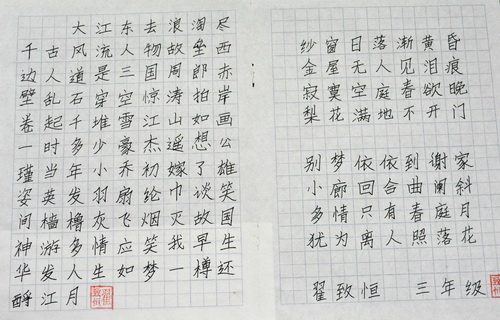 大江东去浪淘尽
千古风流人物故垒西
边人道是三国周郎赤
壁乱石穿空惊涛拍岸
卷起千堆雪江山如画
一时多少豪杰遥想公
瑾当年小乔初嫁了雄
姿英发羽扇纶巾谈笑
间樯橹灰飞烟灭故国
神游多情应笑我早生
华发人生如梦一樽还
酹江月
纱窗日落渐黄昏
金屋无人见泪痕
寂寞空庭春欲晚
梨花满地不开门
别梦依依到谢家
小廊回合曲阑斜
多情只有春庭月
犹为离人照落花
翟致恒 三年级